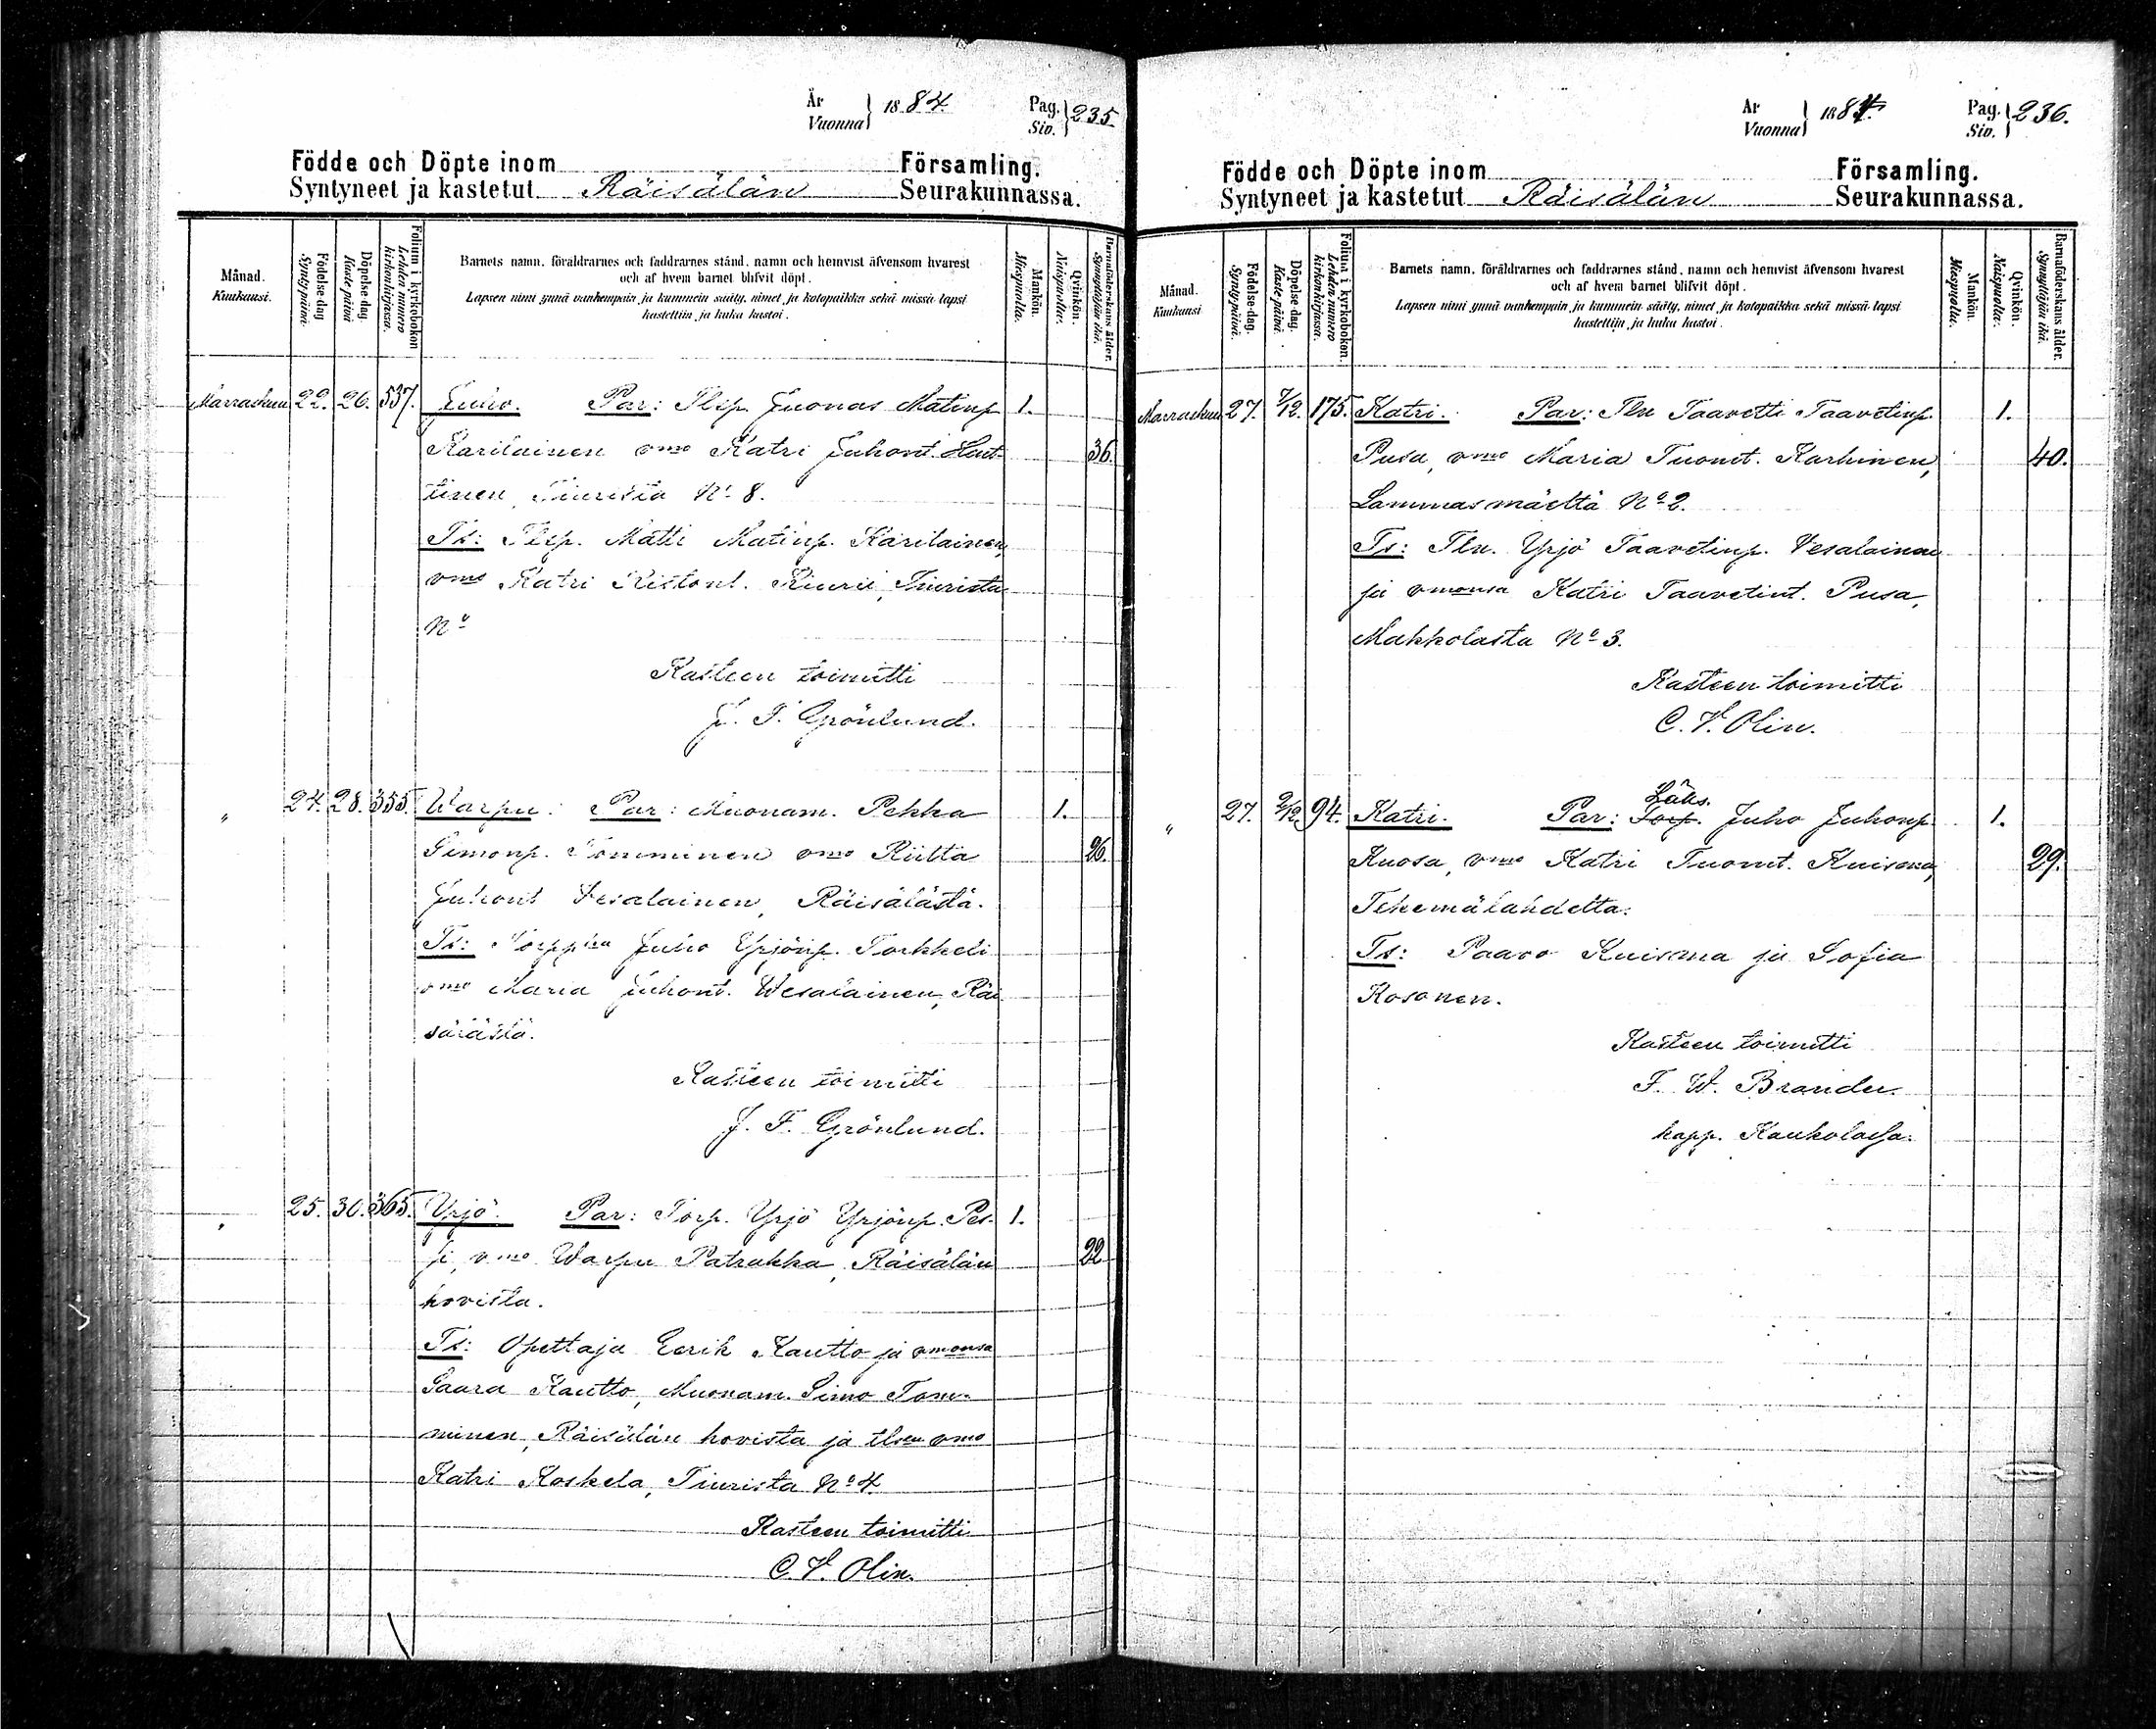 År
Vuonna } 1884.
Pag.
Siv. } 235.
Födde och Döpte inom Församling.
Syntyneet ja kastetut Räisälän Seurakunnassa.
Månad.
Kuukausi.
Födelse-dag
Synty-päivä.
Döpelse-dag.
Kaste-päivä
Folium i kyrkobokon
Lehden numero
kirkonkirjassa.
Barnets namn, föräldrarnes och faddrarnes stånd, namn och hemvist äfvensom hvarest
och af hvem barnet blifvit döpt.
Lapsen nimi ynnä vanhempain ja kummein sääty, nimet ja kotopaikka sekä missä lapsi
kastettiin ja kuka kastoi.
Mankön.
Miespuolia.
Qvinkön.
Naispuolia.
Barnaföderskans ålder.
Synnyttäjän ikä.
Marraskuu 22. 26. 537. Juho. Par: Tlsp. Juonas Matinp. 1.
Karilainen vmo Katri Juhont. Hut- 36.
tinen, Tiurista No 8.
Ts: Tlsp. Matti Matinp. Karilainen,
vmo Katri Ristont. Kiurii, Tiurista
No
Kasteen toimitti
J. F. Grönlund.
" 24. 28. 355. Warpu. Par: Muonam. Pekka 1.
Simonp. Tomminen vmo Riitta 26.
Juhont Vesalainen, Räisälästä.
Ts: Torppra Juho Yrjönp. Torkkeli
vmo Maria Juhont. Wesalainen, Räi
sälästä.
Kasteen toimitti
J. F. Grönlund.
" 25. 30. 365. Yrjö. Par: Torp. Yrjö Yrjönp. Pes- 1.
si, vmo Warpu Patrakka, Räisälän 22
hovista.
Ts: Opettaja Eerik Kautto ja vmonsa
Saara Kautto, Muonam. Simo Tom-
minen, Räisälän hovista ja tlsen vmo
Katri Koskela, Tiurista No 4.
Kasteen toimitti
C. V. Olin.
År
Vuonna } 1884.
Pag.
Siv. } 236.
Födde och Döpte inom Församling.
Syntyneet ja kastetut Räisälän Seurakunnassa.
Månad.
Kuukausi
Födelse-dag.
Synty-päivä.
Döpelse-dag.
Kaste-päivä.
Folium i kyrkobokon.
Lehden numero
kirkonkirjassa.
Barnets namn, föräldrarnes och faddrarnes stånd, namn och hemvist äfvensom hvarest
och af hvem barnet blifvit döpt.
Lapsen nimi ynnä vanhempain ja kummein sääty, nimet ja kotopaikka sekä missä lapsi
kastettiin ja kuka kastoi.
Mankön.
Miespuolia.
Qvinkön.
Naispuolia.
Barnaföderskans ålder.
Synnyttäjän ikä.
Marraskuu 27. 7/12. 175. Katri. Par: Tln Taavetti Taavetinp. 1.
Pusa, vmo Maria Tuomt. Karhinen, 40.
Lammasmäeltä No 2.
Ts: Tln. Yrjö Taavetinp. Vesalainen
ja vmonsa Katri Taavetint. Pusa,
Makkolasta No 3.
Kasteen toimitti
C. V. Olin.
Läks.
" 27. 2/12. 94. Katri. Par: Torp. Juho Juhonp. 1.
Kuosa, vmo Katri Tuomt. Kuisma, 29.
Tehemälahdelta.
Ts: Paavo Kuisma ja Sofia
Kosonen.
Kasteen toimitti
F. W. Brander.
kapp. Kaukolassa.